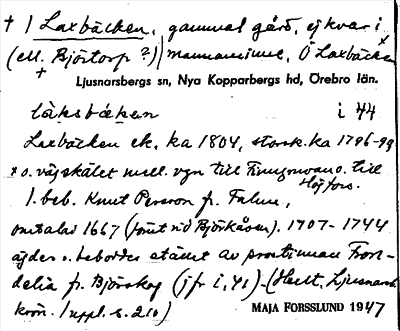 † 1 Laxbäcken, gammal gård, ej kvar i
(ell. Björtorp ?) mannaminne, Ö Laxbäcken
Ljusnarsbergs sn, Nya Kopparbergs hd, Örebro län.
làksbǎcken i 44
Laxbäcken ek. ka 1804, storsk. ka 1796-99
x o. vägskälet mell. vgn till Finngruvan o. till
Högfors.
1. beb. Knut Persson fr. Falun,
omtalas 1667 (förut vid Björkåsen). 1707-1744
ägdes o. beboddes stället av prostinnan Fron-
delia fr. Björskog (jfr i, 41). (Hult, Ljusnarsb.
krön. 1 uppl. s. 210)
MAJA FORSSLUND 1947